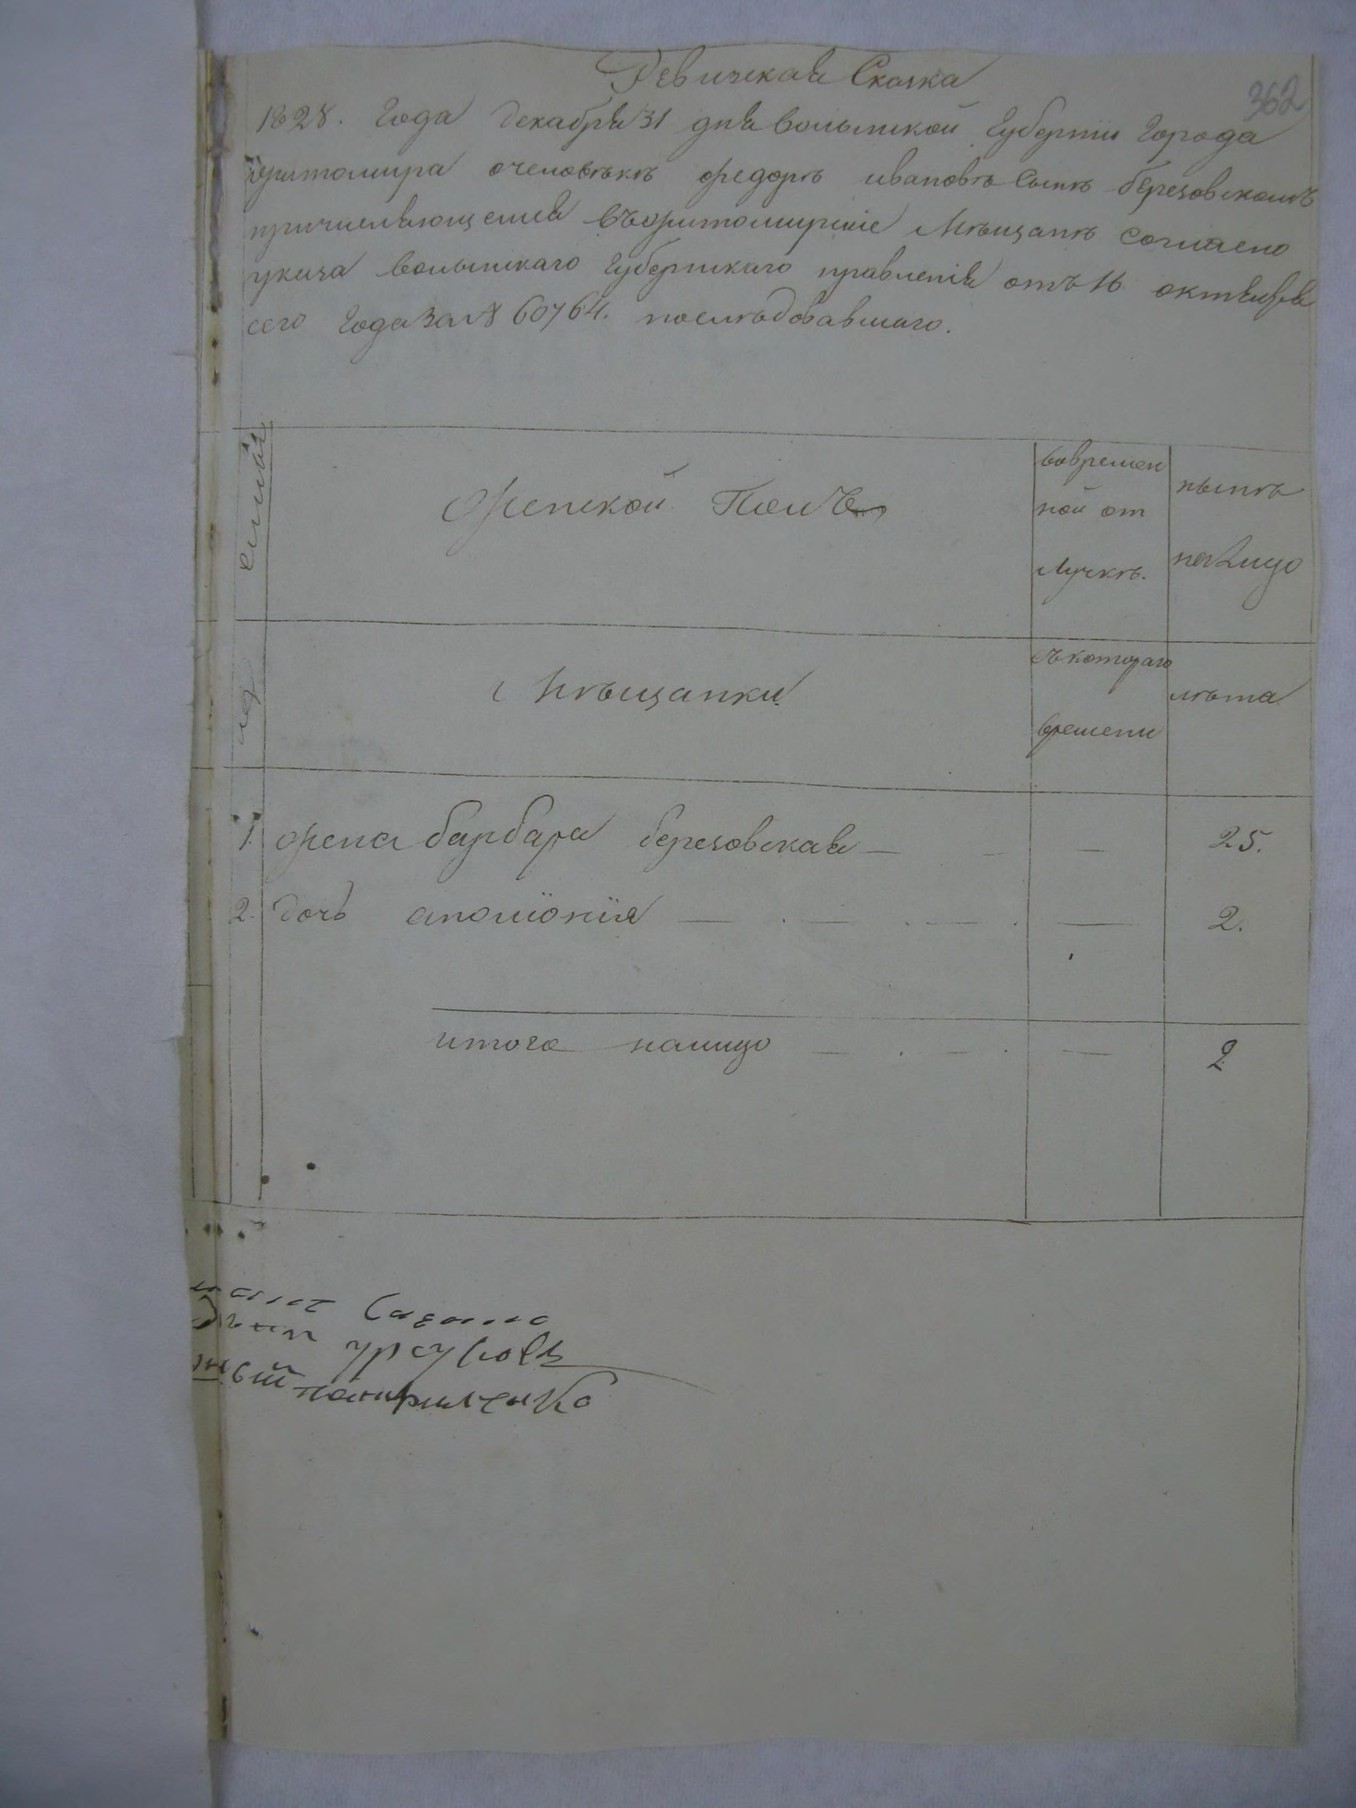 Ревизская Сказка
362
1828. Года декабря 31 дня волынской Губернии Города
житомира очеловѣкѣ федорѣ ивановѣ сынѣ березовскомъ
причисляющемся въжитомирские Мѣщанѣ согласно
указа волынскаго Губернскаго правления отъ 16 октября
сего Года за № 60764. послѣдовавшаго.
семьи
женской Полъ
вовремен
ной от
лучкѣ.
нынѣ
налицо
Мѣщанки
съкотораго
времени
лѣта
1. жена барбара березовская — — — 25.
2. дочь аполіонія — — — — 2.
итого налицо — — — 2
урсулов